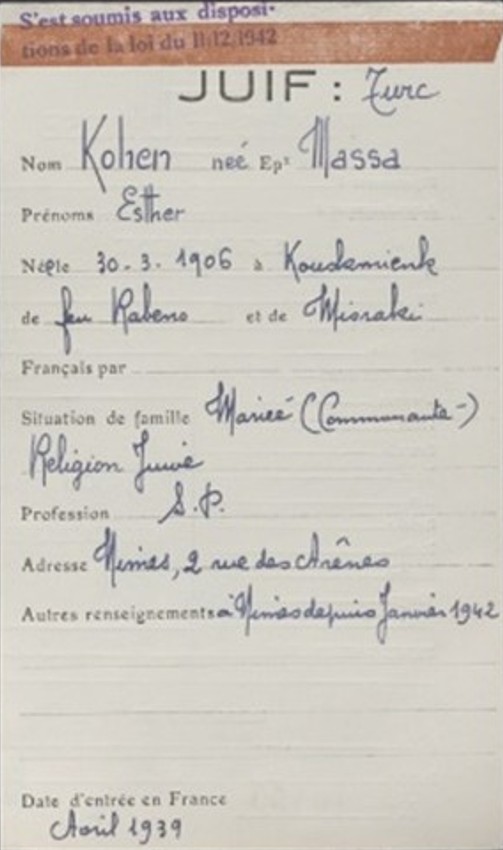 S'est soumis aux disposi-
tions de la loi du 11/12/1942
JUIF : Turc
Nom Kohen neé Epˢᵉ Massa
Prénoms Esther
Né le 30-3-1906 à Koudemienk
de feu Rabeno et de Misraki
Français par
Situation de famille Mariée (Communauté-)
Religion Juive
Profession S.P.
Adresse Nimes, 2 rue des Arênes
Autres renseignements à Nimes depuis Janvier 1942
Date d'entrée en France
Avril 1939